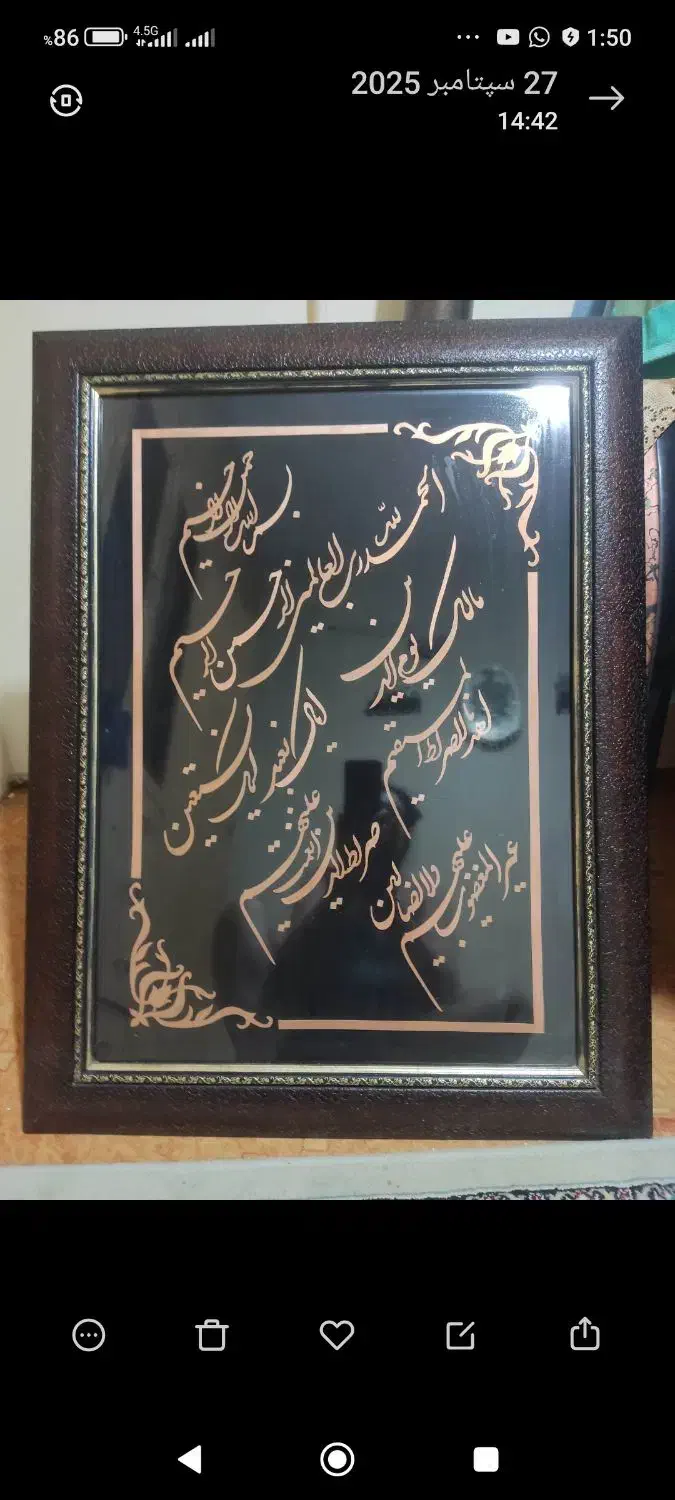 %86
4.5G
1:50
27 سپتامبر 2025
14:42
بسم الله الرحمن الرحیم
الحمد لله رب العالمین الرحمن الرحیم
مالک یوم الدین
ایاک نعبد و ایاک نستعین
اهدنا الصراط المستقیم
صراط الذین انعمت علیهم
غیر المغضوب علیهم ولا الضالین